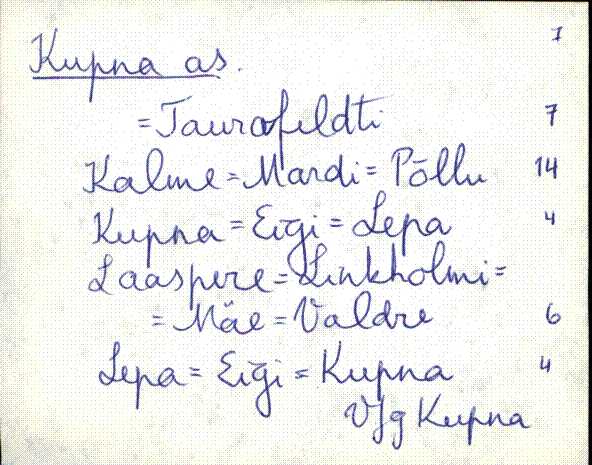 7
Kupna as.
=Taurafeldti 7
Kalme=Mardi=Põllu 14
Kupna=Eigi=Lepa 4
Laaspere=Linkholmi=
=Mäe=Valdre 6
Lepa=Eigi=Kupna 4
V/g Kupna